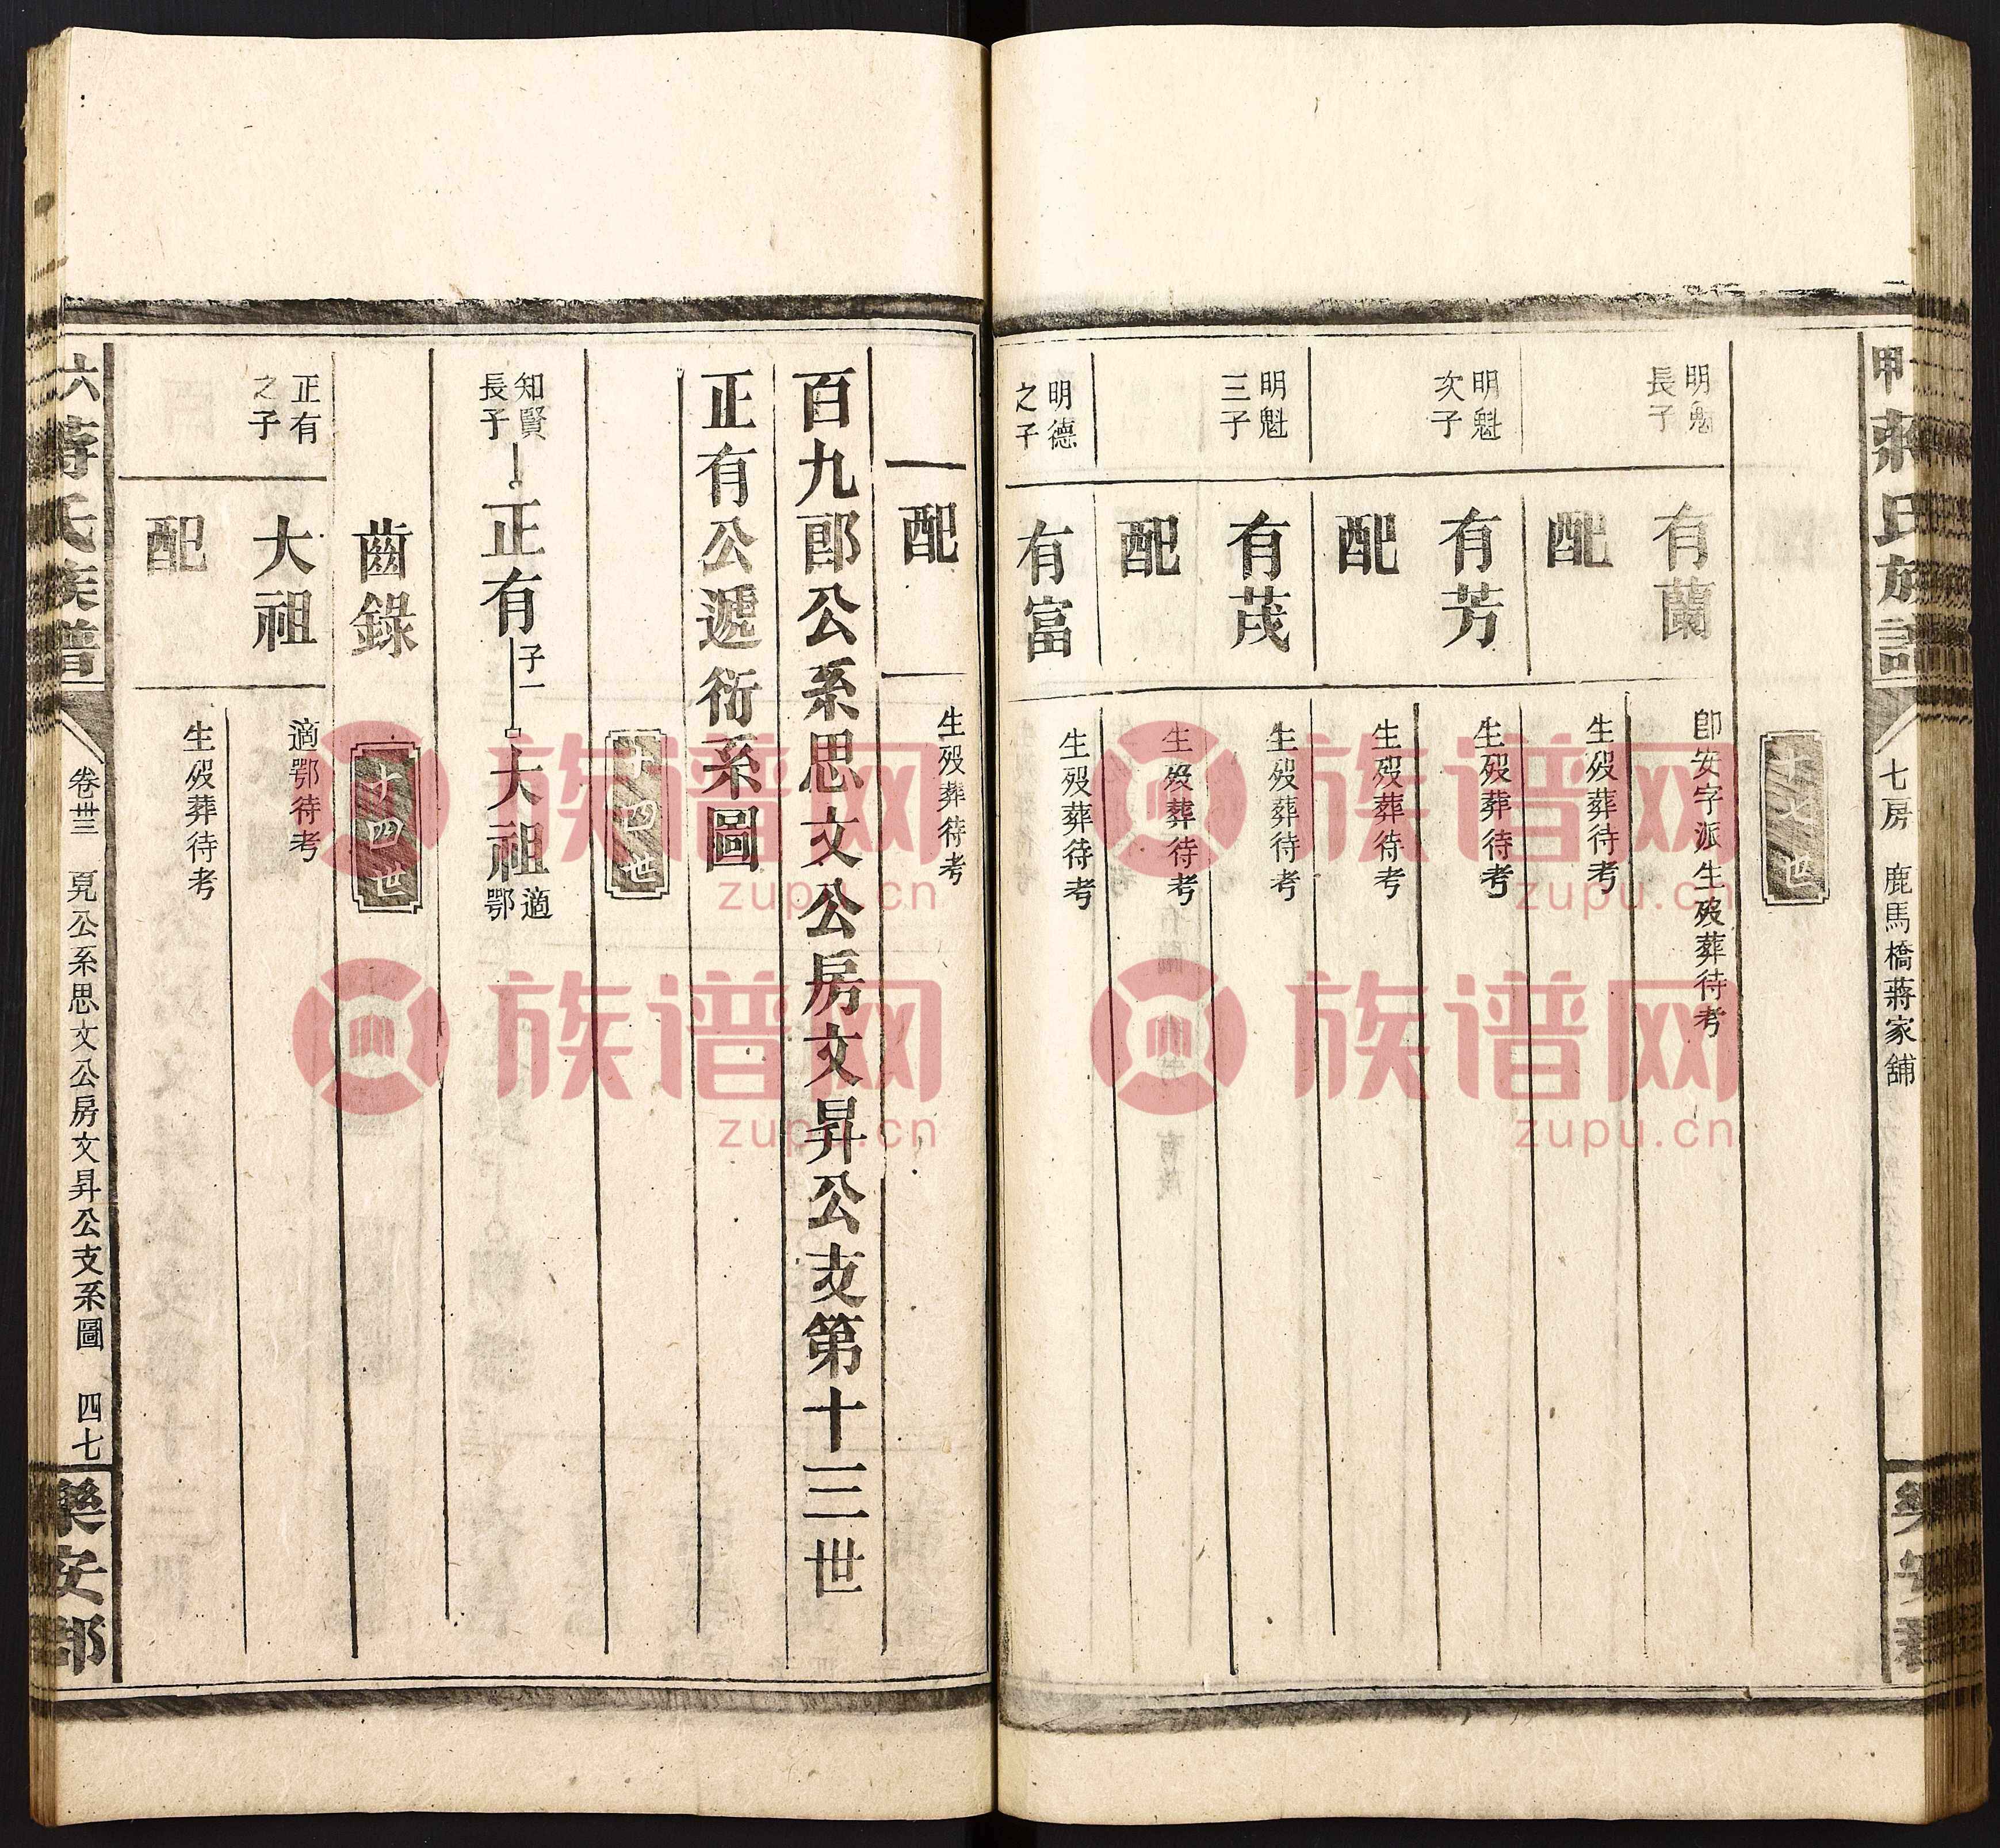 甲 蔣氏族譜 七房 鹿馬橋蔣家舖 樂安郡
十七世
明魁長子 有蘭 卽安字派生歿葬待考
配 生歿葬待考
明魁次子 有芳 生歿葬待考
配 生歿葬待考
明魁三子 有茂 生歿葬待考
配 生歿葬待考
明德之子 有富 生歿葬待考
配 生歿葬待考
百九郎公系思文公房文昇公支第十三世
正有公遞衍系圖
十四世
知賢長子 正有 子一 大祖 適鄂
齒錄 十四世
正有之子 大祖 適鄂待考
配 生歿葬待考
六 蔣氏族譜 卷卅三 覓公系思文公房文昇公支系圖 四七 樂安郡
族谱网
zupu.cn
族谱网
zupu.cn
族谱网
zupu.cn
族谱网
zupu.cn